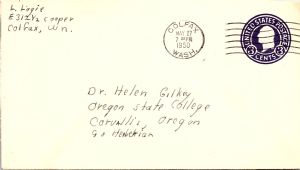 L. Logie
E 312½ Cooper
Colfax, Wn.
COLFAX
MAY 27
1950
WASH.
UNITED STATES POSTAGE
3 CENTS 3
Dr. Helen Gilkey
Oregon State College
Corvallis, Oregon